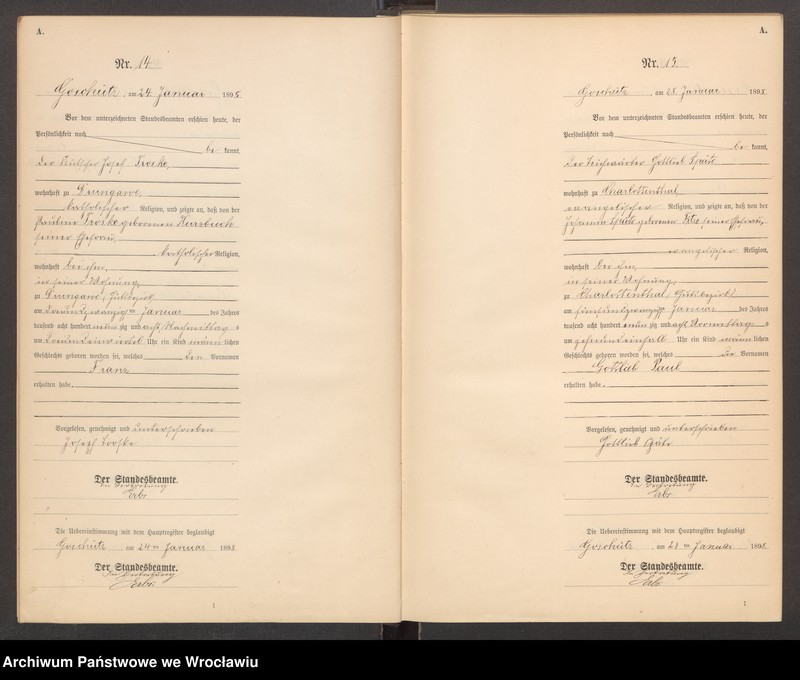 A.
Nr. 14
Goschütz, am 24. Januar 1898.
Vor dem unterzeichneten Standesbeamten erschien heute, der
Persönlichkeit nach
be kannt,
der Josef Troske,
wohnhaft zu Drungawe,
katholischer Religion, und zeigte an, daß von der
Pauline Troske geborenen
seiner Ehefrau,
katholischer Religion,
wohnhaft bei ihm,
in seiner Wohnung,
zu Drungawe, Gutsbezirk,
am dreiundzwanzigten Januar des Jahres
tausend acht hundert neunzig und acht Nachmittags
um Uhr ein Kind männlichen
Geschlechts geboren worden sei, welches den Vornamen
Franz
erhalten habe.
Vorgelesen, genehmigt und unterschrieben
Joseph Troske
Der Standesbeamte.
In Vertretung
Die Uebereinstimmung mit dem Hauptregister beglaubigt
Goschütz, am 24ten Januar 1898.
Der Standesbeamte.
In Vertretung
1
A.
Nr. 15.
Goschütz, am 28. Januar 1898.
Vor dem unterzeichneten Standesbeamten erschien heute, der
Persönlichkeit nach
be kannt,
der Gottlieb
wohnhaft zu Charlottenthal,
evangelischer Religion, und zeigte an, daß von der
geborenen seiner Ehefrau,
evangelischer Religion,
wohnhaft bei ihm,
in seiner Wohnung,
zu Charlottenthal, Gutsbezirk,
am fünfundzwanzigten Januar des Jahres
tausend acht hundert neunzig und acht Vormittags
um Uhr ein Kind männlichen
Geschlechts geboren worden sei, welches die Vornamen
Gottlieb Paul
erhalten habe.
Vorgelesen, genehmigt und unterschrieben
Gottlieb
Der Standesbeamte.
In Vertretung
Die Uebereinstimmung mit dem Hauptregister beglaubigt
Goschütz, am 28ten Januar 1898.
Der Standesbeamte.
In Vertretung
Archiwum Państwowe we Wrocławiu